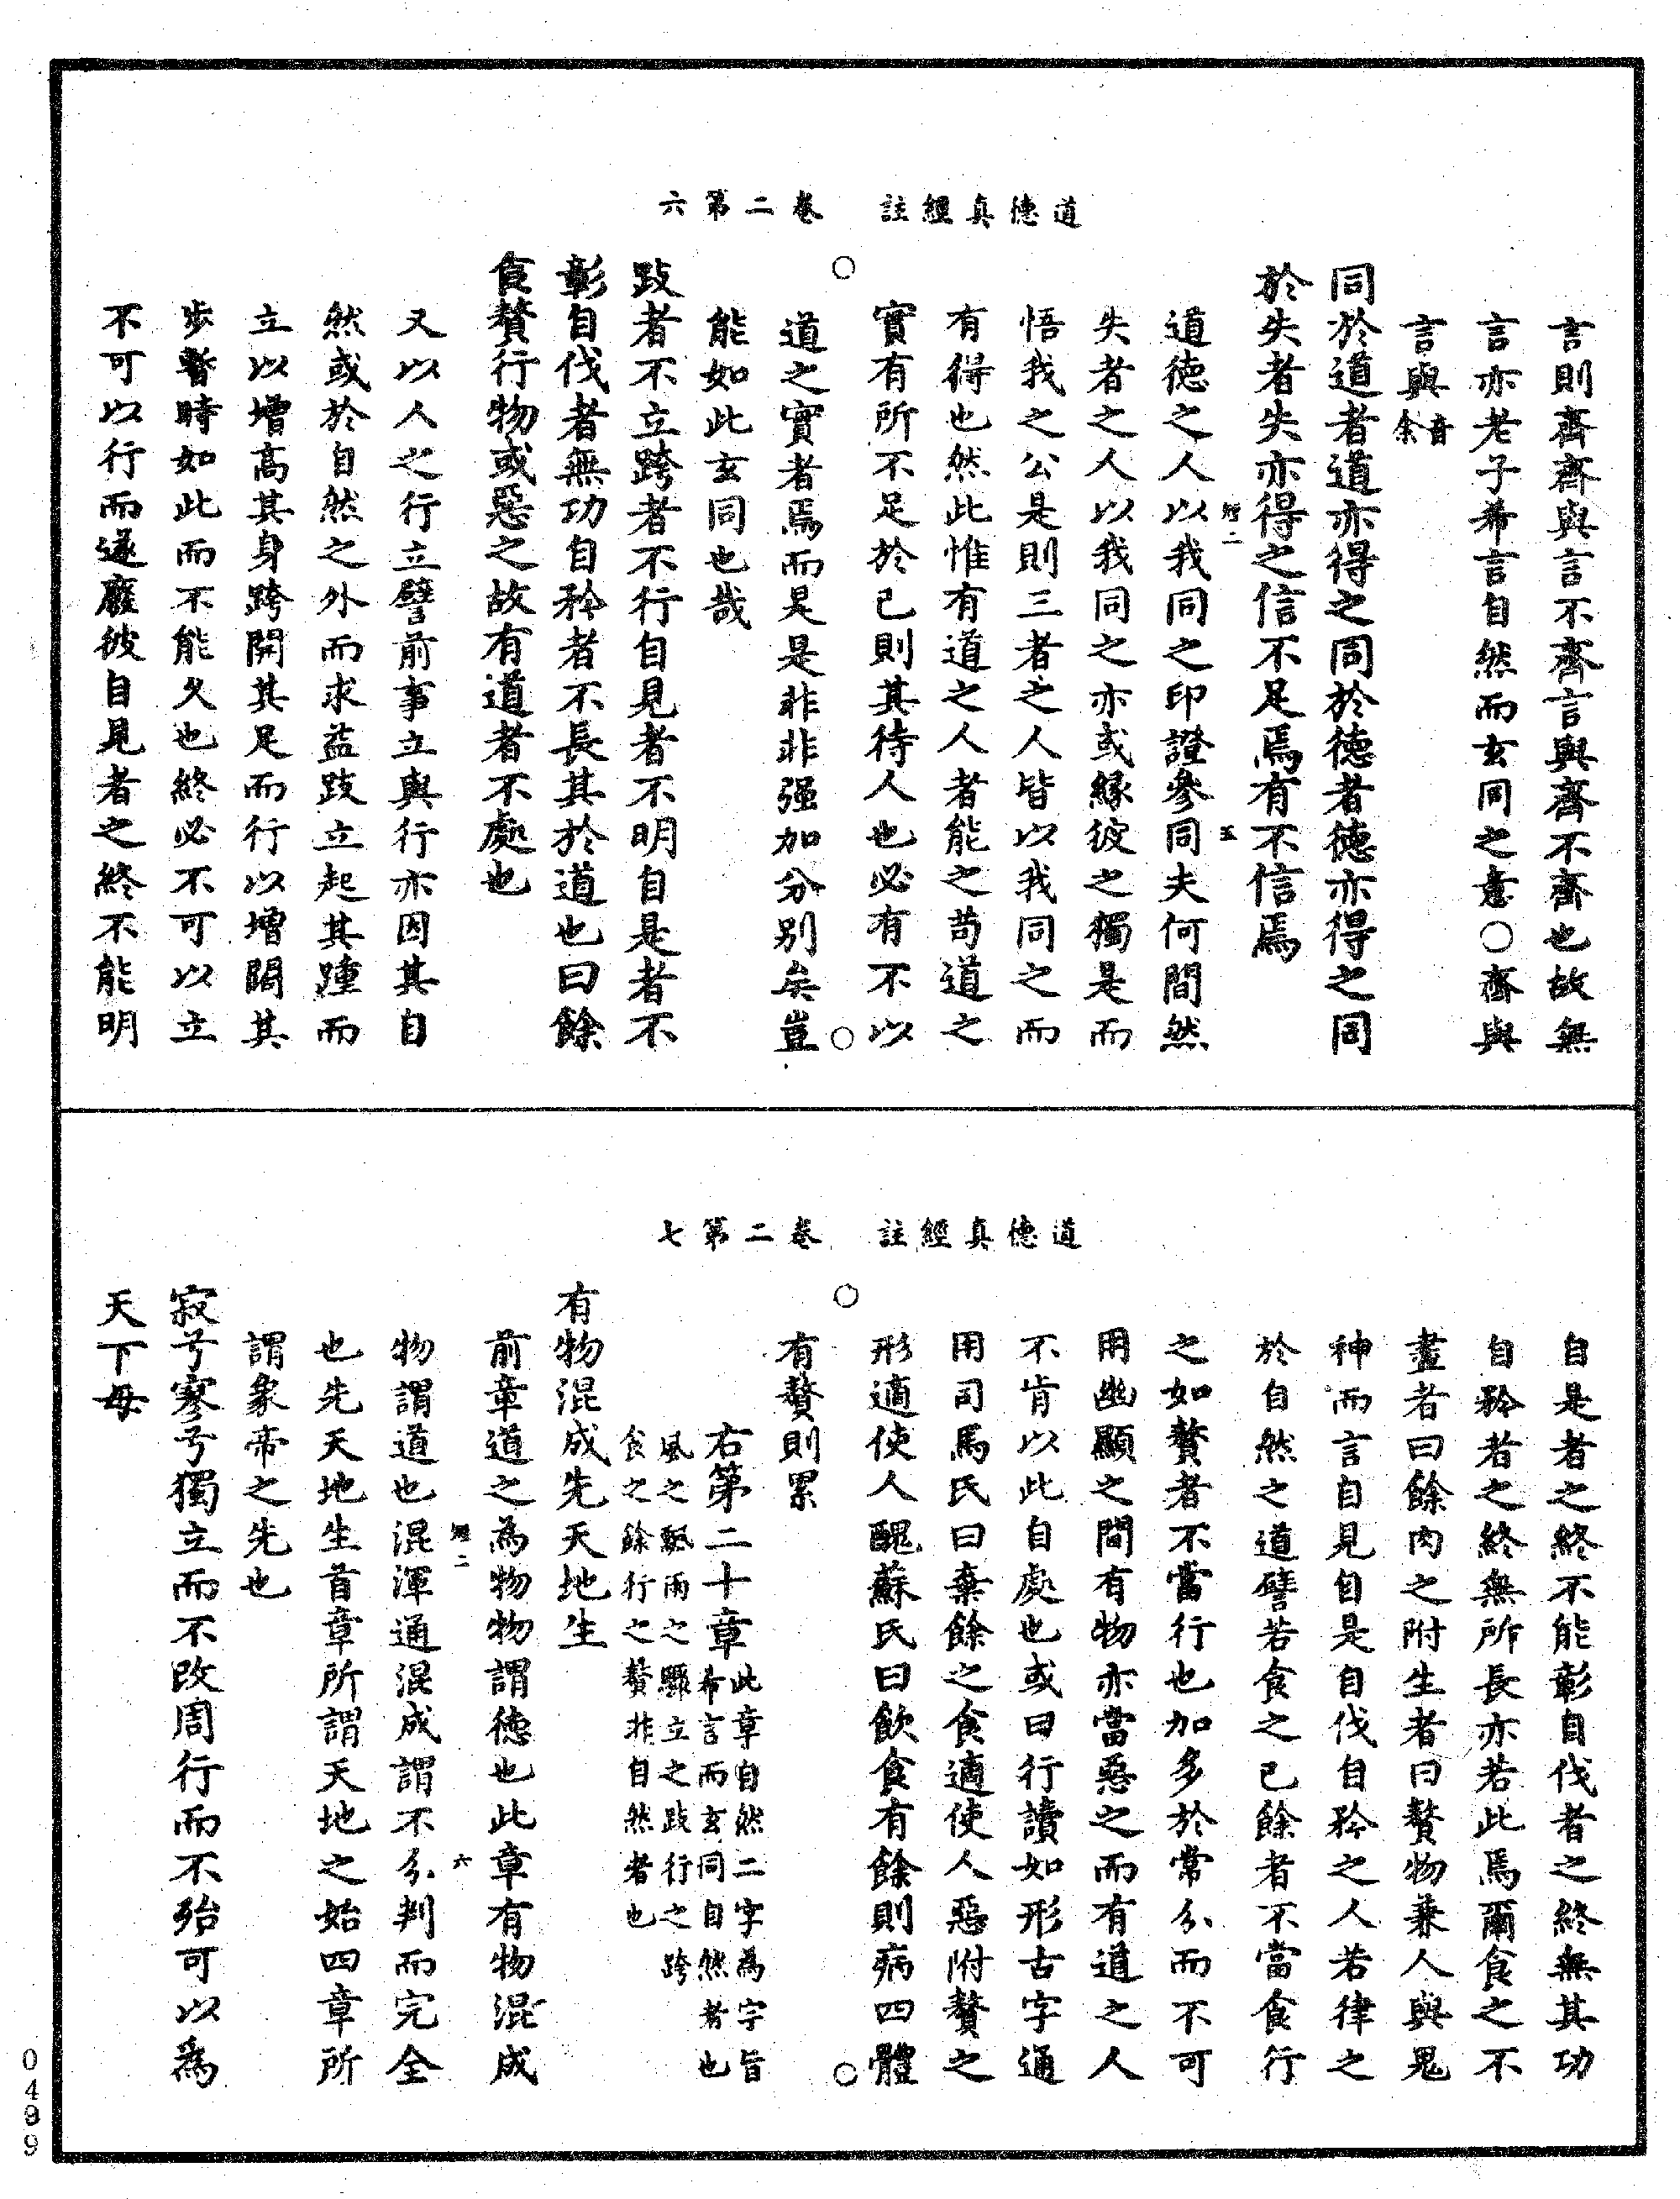 道德真經註　卷二第六
言則齊齊與言不齊言與齊不齊也故無
言亦老子希言自然而玄同之意○齊與
言與音余
同於道者道亦得之同於德者德亦得之同
於失者失亦得之信不足焉有不信焉
道德之人以我同之印證參同夫何間然
失者之人以我同之亦或緣彼之獨是而
悟我之公是則三者之人皆以我同之而
有得也然此惟有道之人者能之苟道之
實有所不足於己則其待人也必有不以
道之實者焉而是是非非强加分别矣豈
能如此玄同也哉
跂者不立跨者不行自見者不明自是者不
彰自伐者無功自矜者不長其於道也曰餘
食贅行物或惡之故有道者不處也
又以人之行立譬前事立與行亦因其自
然或於自然之外而求益跂立起其踵而
立以增高其身跨開其足而行以增闊其
步暫時如此而不能久也終必不可以立
不可以行而遂廢彼自見者之終不能明
道德真經註　卷二第七
自是者之終不能彰自伐者之終無其功
自矜者之終無所長亦若此焉爾食之不
盡者曰餘肉之附生者曰贅物兼人與鬼
神而言自見自是自伐自矜之人若律之
於自然之道譬若食之已餘者不當食行
之如贅者不當行也加多於常分而不可
用幽顯之間有物亦當惡之而有道之人
不肯以此自處也或曰行讀如形古字通
用司馬氏曰棄餘之食適使人惡附贅之
形適使人醜蘇氏曰飲食有餘則病四體
有贅則累
右第二十章此章自然二字為字旨
希言而玄同自然者也
風之飄雨之驟立之跂行之跨
食之餘行之贅非自然者也
有物混成先天地生
前章道之為物物謂德也此章有物混成
物謂道也混渾通混成謂不分判而完全
也先天地生首章所謂天地之始四章所
謂象帝之先也
寂兮寥兮獨立而不改周行而不殆可以為
天下母
0499